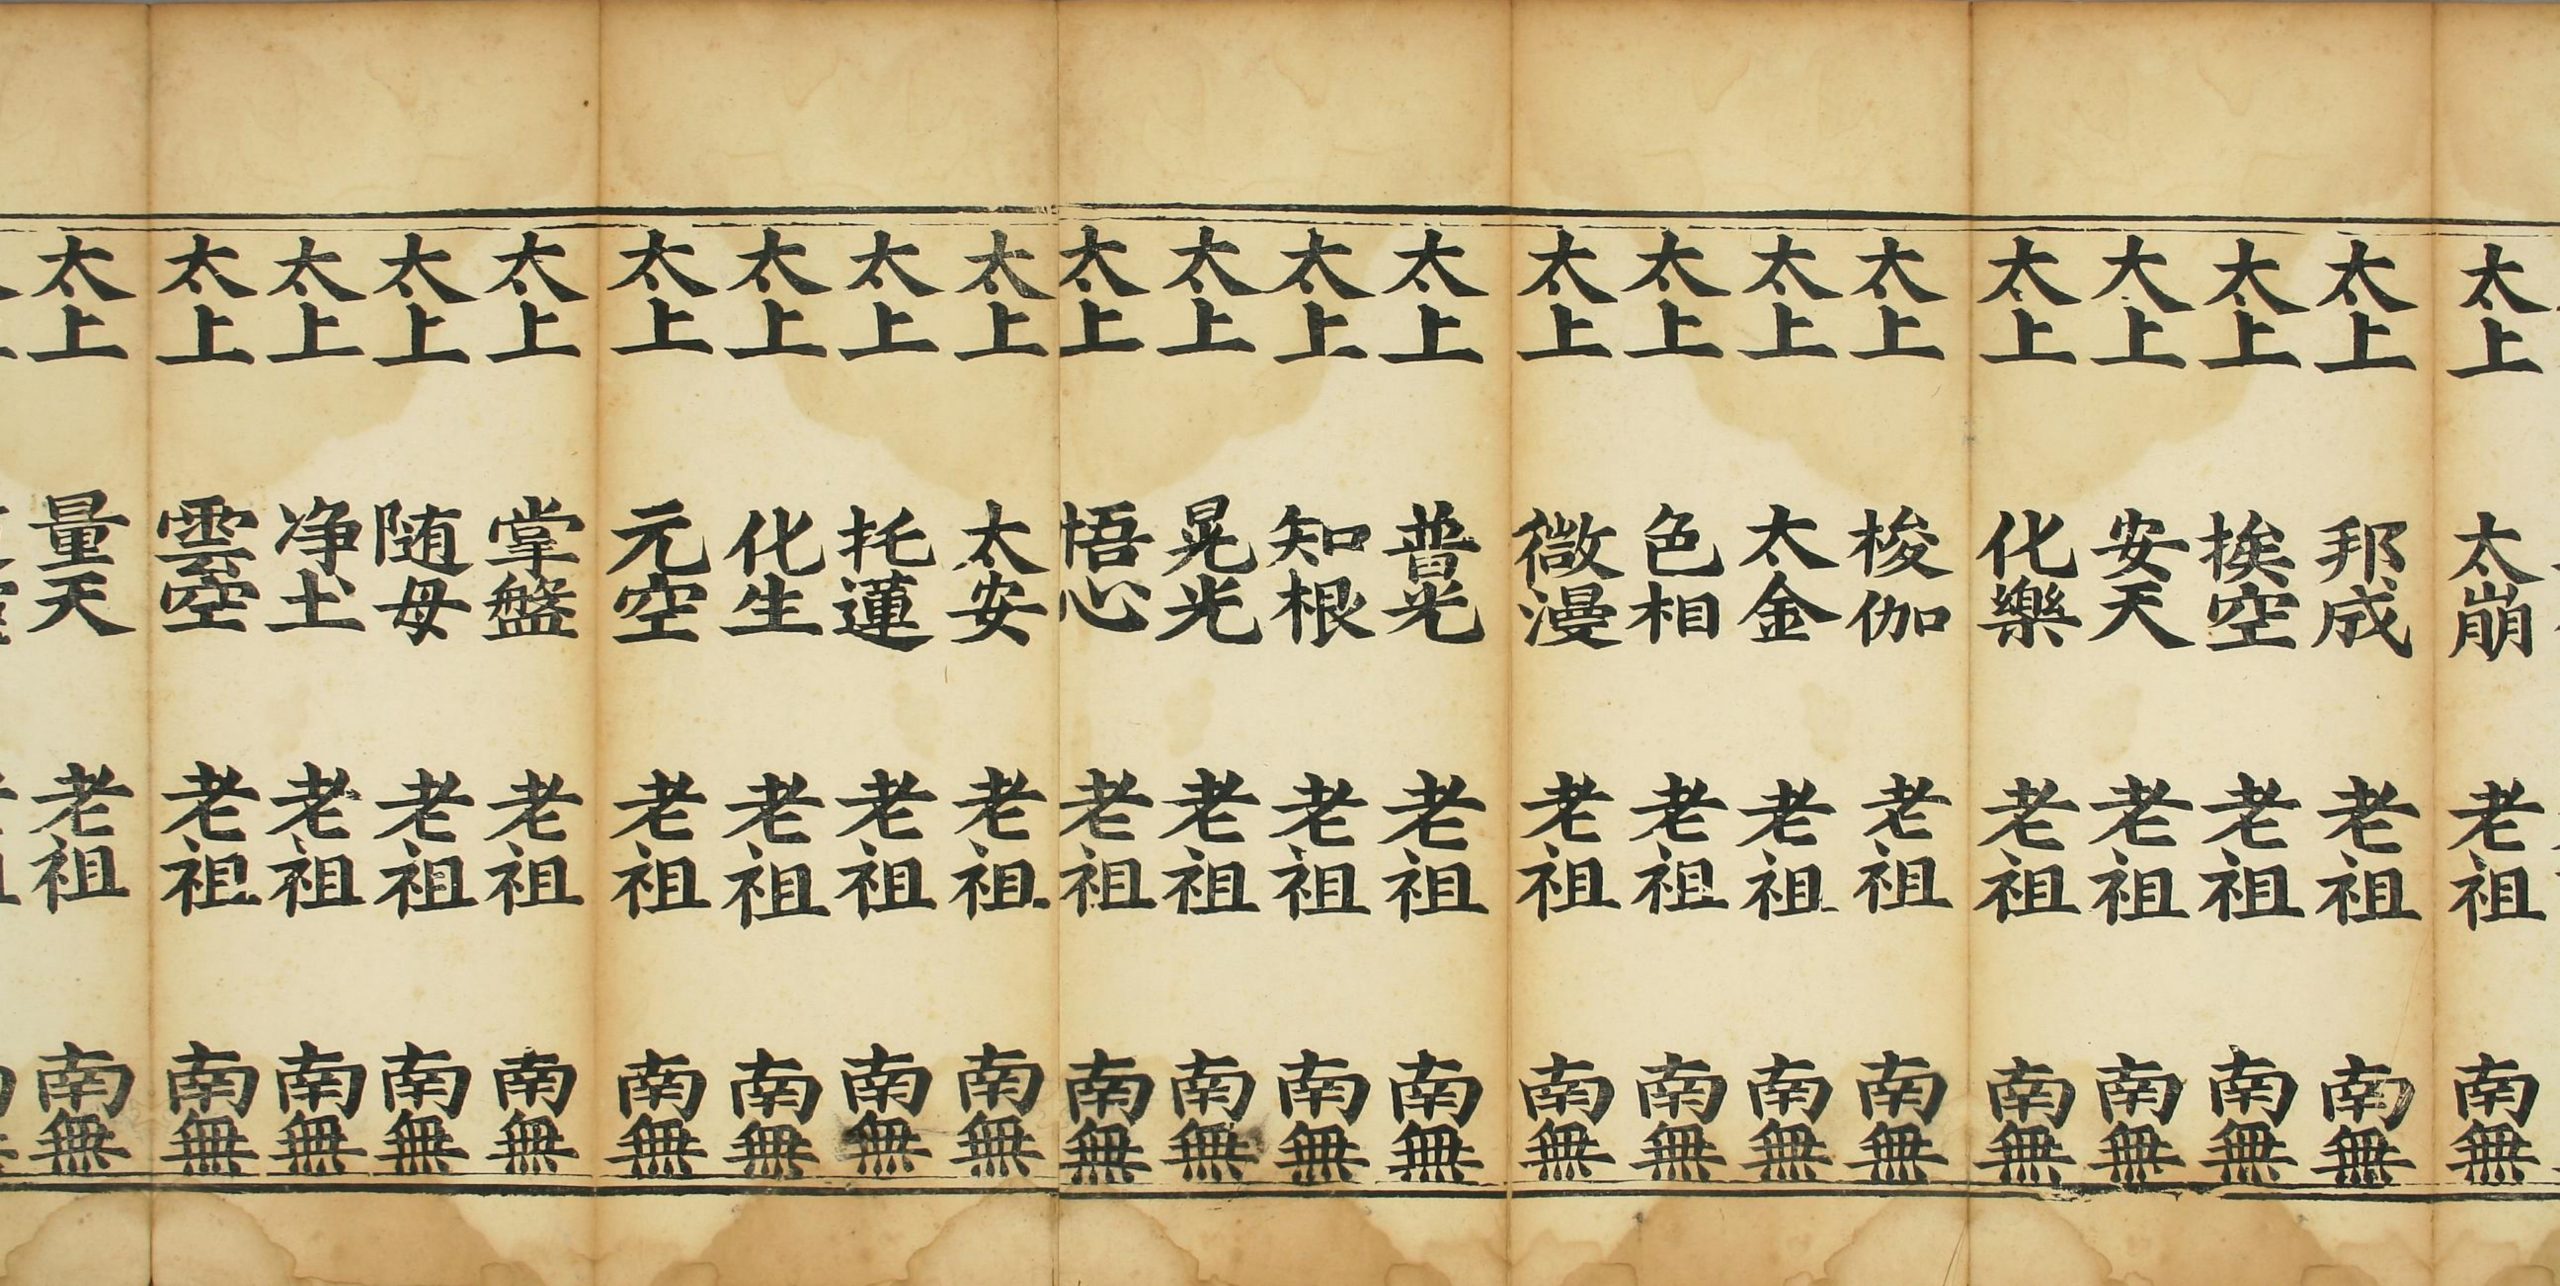 太上太崩老祖南無
太上邦成老祖南無
太上挨空老祖南無
太上安天老祖南無
太上化樂老祖南無
太上梭伽老祖南無
太上太金老祖南無
太上色相老祖南無
太上微漫老祖南無
太上普光老祖南無
太上知根老祖南無
太上晃光老祖南無
太上悟心老祖南無
太上太安老祖南無
太上托蓮老祖南無
太上化生老祖南無
太上元空老祖南無
太上掌盤老祖南無
太上随母老祖南無
太上净土老祖南無
太上雲空老祖南無
太上量天老祖南無